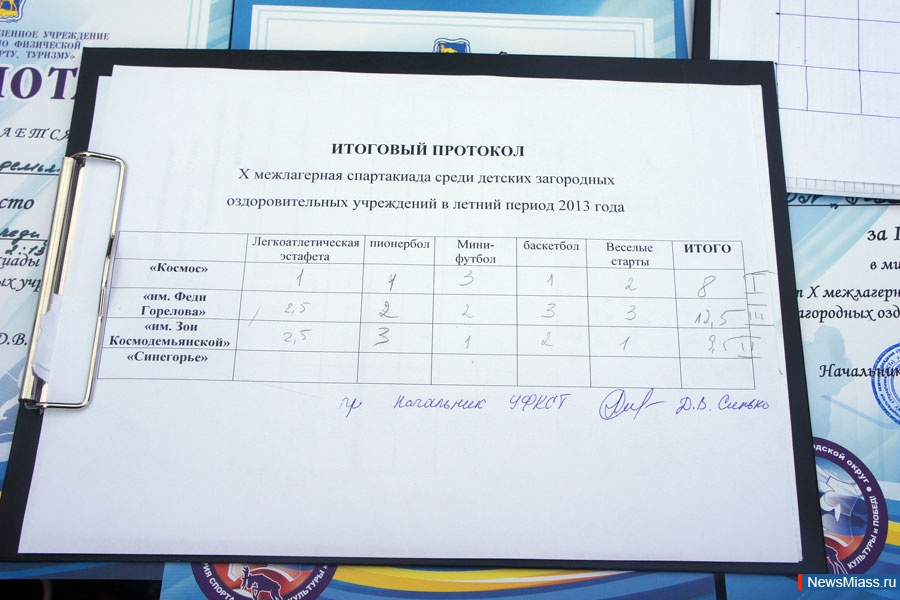 ЗЕННОЕ УЧРЕЖДЕНИЕ
ПО ФИЗИЧЕСКОЙ
ПОРТУ, ТУРИЗМУ»
АЕТСЯ
сто
2.13
ИТОГОВЫЙ ПРОТОКОЛ
X межлагерная спартакиада среди детских загородных
оздоровительных учреждений в летний период 2013 года
Легкоатлетическая эстафета пионербол Мини-футбол баскетбол Веселые старты ИТОГО
«Космос» 1 1 3 1 2 8 I
«им. Феди Горелова» 2,5 2 2 3 3 12,5 III
«им. Зои Космодемьянской» 2,5 3 1 2 1 9,5 II
«Синегорье»
Начальник УФКСТ Д.В. Синько
Д.В.
за
в ми
т X межлагерн
агородных озд
Начальник
ОДСКОЙ ОКРУГ
КУЛЬТУРЫ И ПОБЕД!
NewsMiass.ru